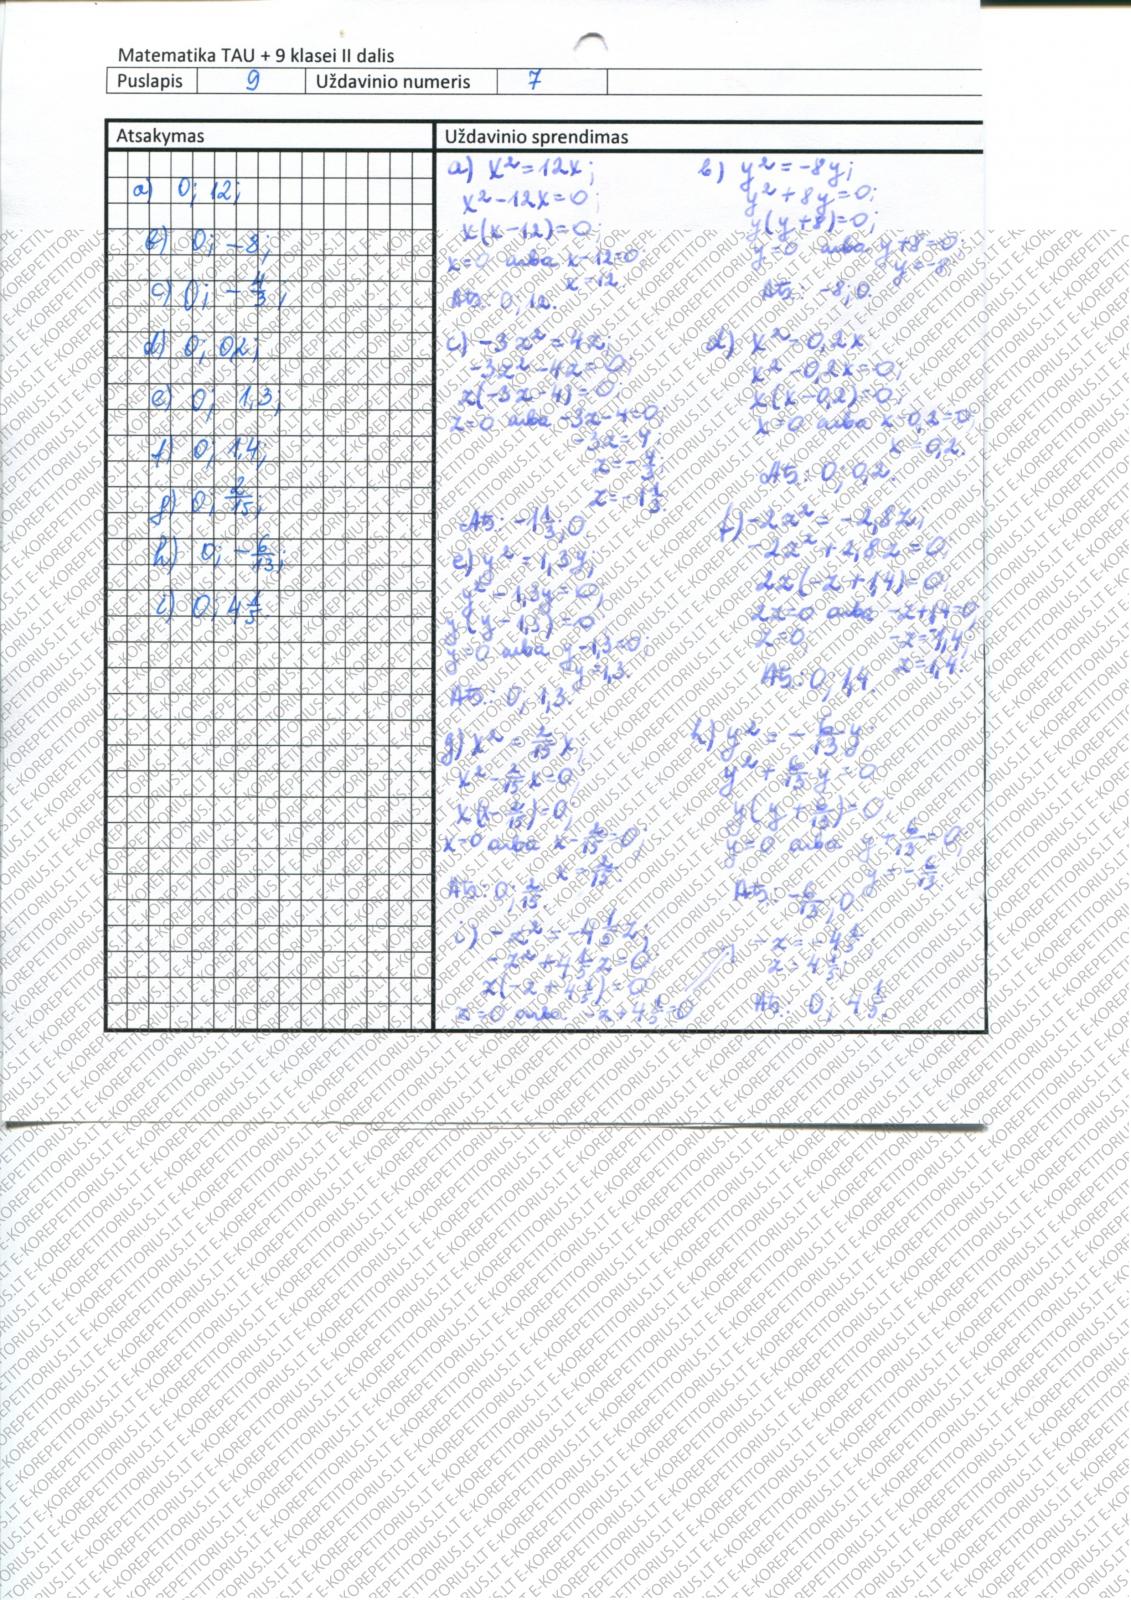 Matematika TAU + 9 klasei II dalis
Puslapis 9 Uždavinio numeris 7
Atsakymas
a) 0; 12;
b) 0; -8;
c) 0; -4/3;
d) 0; 0,2;
e) 0; 1,3;
f) 0; 1,4;
g) 0; 2/15;
h) 0; -6/13;
i) 0; 4 1/5
Uždavinio sprendimas
a) x² = 12x;
x² - 12x = 0;
x(x - 12) = 0;
x = 0 arba x - 12 = 0;
x = 12.
Ats.: 0; 12.
b) y² = -8y;
y² + 8y = 0;
y(y + 8) = 0;
y = 0 arba y + 8 = 0;
y = -8
Ats.: -8; 0.
c) -3z² = 4z;
-3z² - 4z = 0;
z(-3z - 4) = 0;
z = 0 arba -3z - 4 = 0;
-3z = 4;
z = -4/3;
z = -1 1/3
Ats.: -1 1/3; 0
d) x² = 0,2x
x² - 0,2x = 0;
x(x - 0,2) = 0;
x = 0 arba x - 0,2 = 0
x = 0,2.
Ats.: 0; 0,2.
e) y² = 1,3y;
y² - 1,3y = 0;
y(y - 1,3) = 0
y = 0 arba y - 1,3 = 0;
y = 1,3.
Ats.: 0; 1,3.
f) -2z² = -2,8z;
-2z² + 2,8z = 0
2z(-z + 1,4) = 0
2z = 0 arba -z + 1,4 = 0
z = 0 -z = -1,4;
z = 1,4.
Ats.: 0; 1,4.
g) x² = 2/15 x;
x² - 2/15 x = 0
x(x - 2/15) = 0;
x = 0 arba x - 2/15 = 0;
x = 2/15.
Ats.: 0; 2/15.
h) y² = -6/13 y
y² + 6/13 y = 0
y(y + 6/13) = 0
y = 0 arba y + 6/13 = 0;
y = -6/13
Ats.: -6/13; 0.
i) -z² = -4 1/5 z;
-z² + 4 1/5 z = 0
z(-z + 4 1/5) = 0
z = 0 arba -z + 4 1/5 = 0
-z = -4 1/5
z = 4 1/5
Ats.: 0; 4 1/5.
E-KOREPETITORIUS.LT